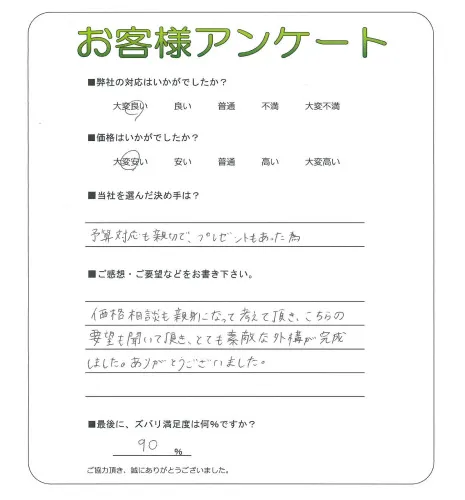 お客様アンケート
■弊社の対応はいかがでしたか？
大変良い 良い 普通 不満 大変不満
■価格はいかがでしたか？
大変安い 安い 普通 高い 大変高い
■当社を選んだ決め手は？
予算対応も親切で、プレゼントもあった為
■ご感想・ご要望などをお書き下さい。
価格相談も親身になって考えて頂き、こちらの
要望も聞いて頂き、とても素敵な外構が完成
しました。ありがとうございました。
■最後に、ズバリ満足度は何%ですか？
90 %
ご協力頂き、誠にありがとうございました。